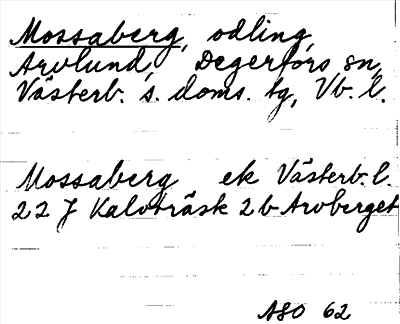 Mossaberg, odling,
Arvlund, Degerfors sn,
Västerb. s. doms. tg, Vb. l.
Mossaberg ek Västerb. l.
22 J Kalvträsk 2b Arvberget
ASO 62